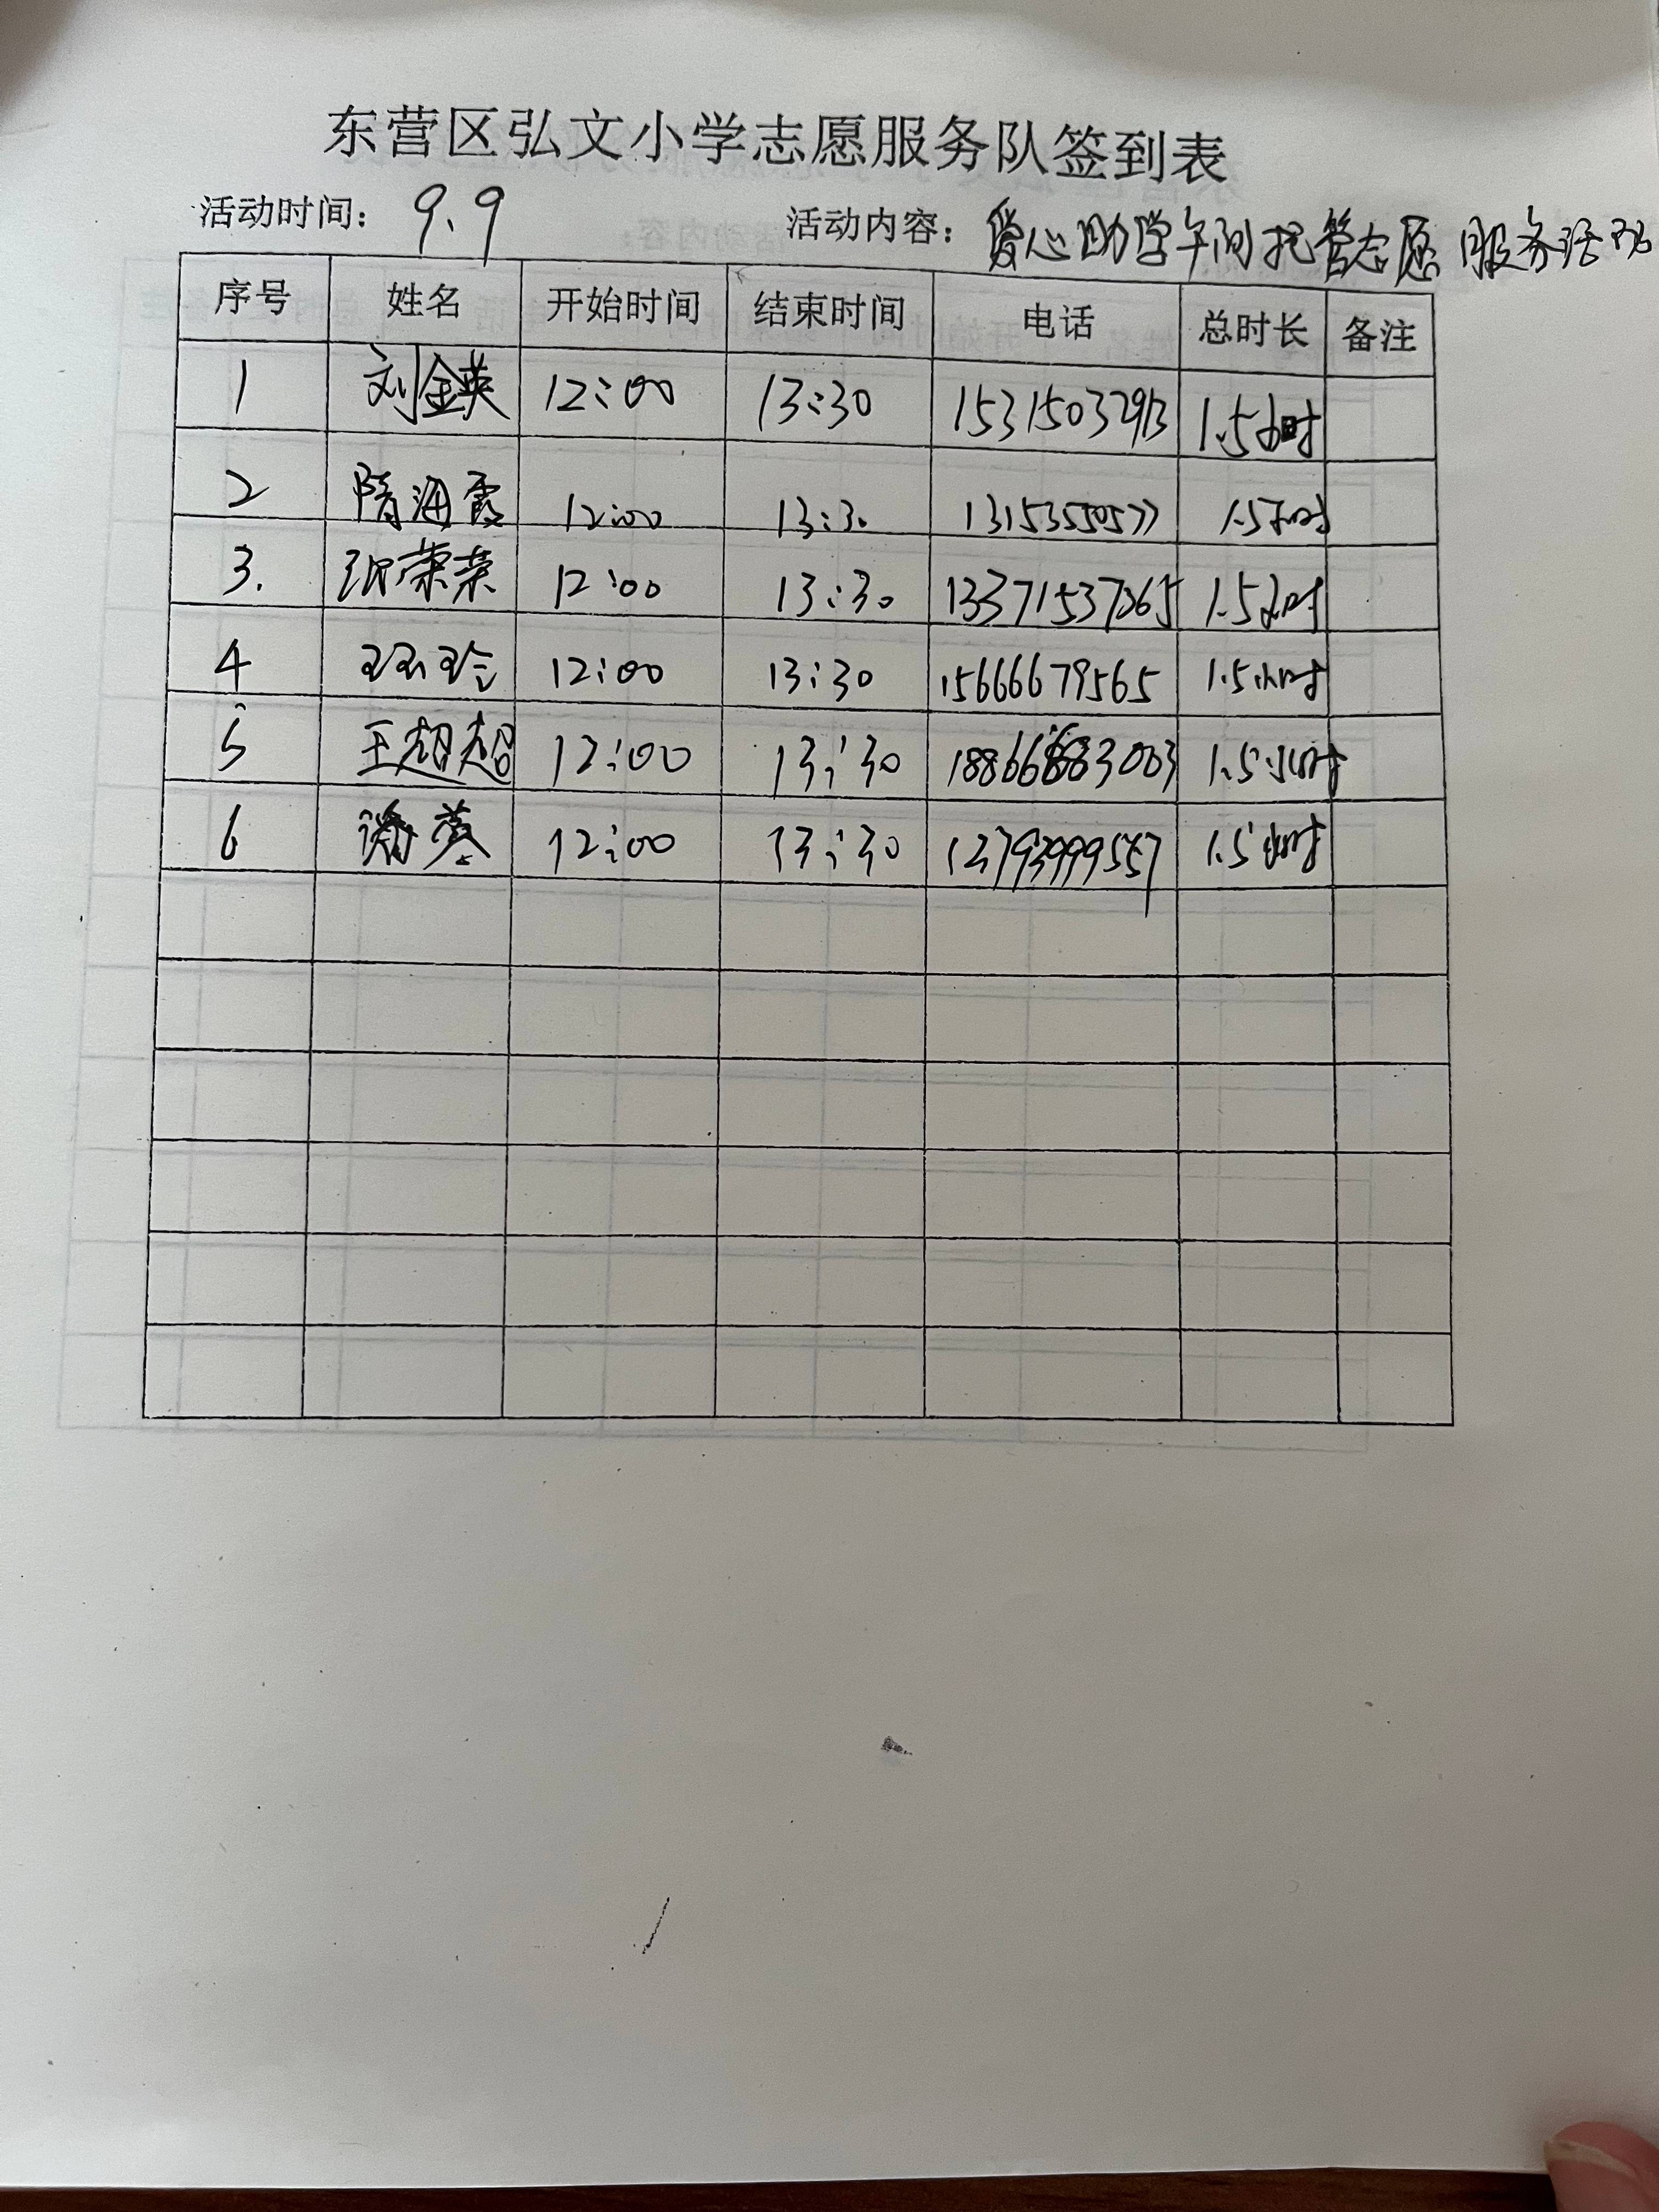 东营区弘文小学志愿服务队签到表
活动时间: 9.9 活动内容: 爱心助学午间托管志愿服务活动
序号 姓名 开始时间 结束时间 电话 总时长 备注
1 刘金英 12:00 13:30 15315032913 1.5小时
2 隋海霞 12:00 13:30 13153550577 1.5小时
3. 荣荣 12:00 13:30 13371537265 1.5小时
4 12:00 13:30 15666679565 1.5小时
5 王超超 12:00 13:30 1.5小时
6 12:00 13:30 1.5小时